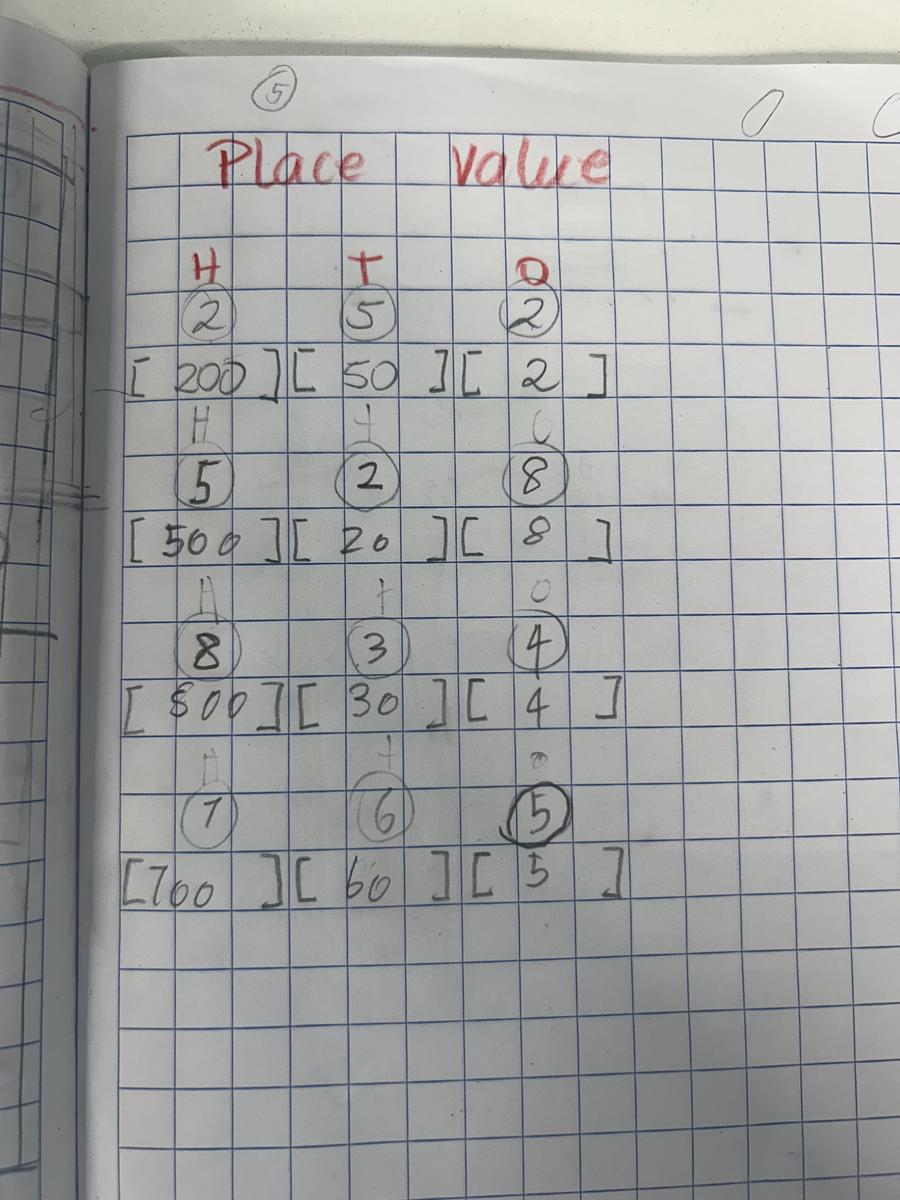 5
Place value
H T O
2 5 2
[ 200 ] [ 50 ] [ 2 ]
H t O
5 2 8
[ 500 ] [ 20 ] [ 8 ]
H t O
8 3 4
[ 800 ] [ 30 ] [ 4 ]
H t O
7 6 5
[ 700 ] [ 60 ] [ 5 ]